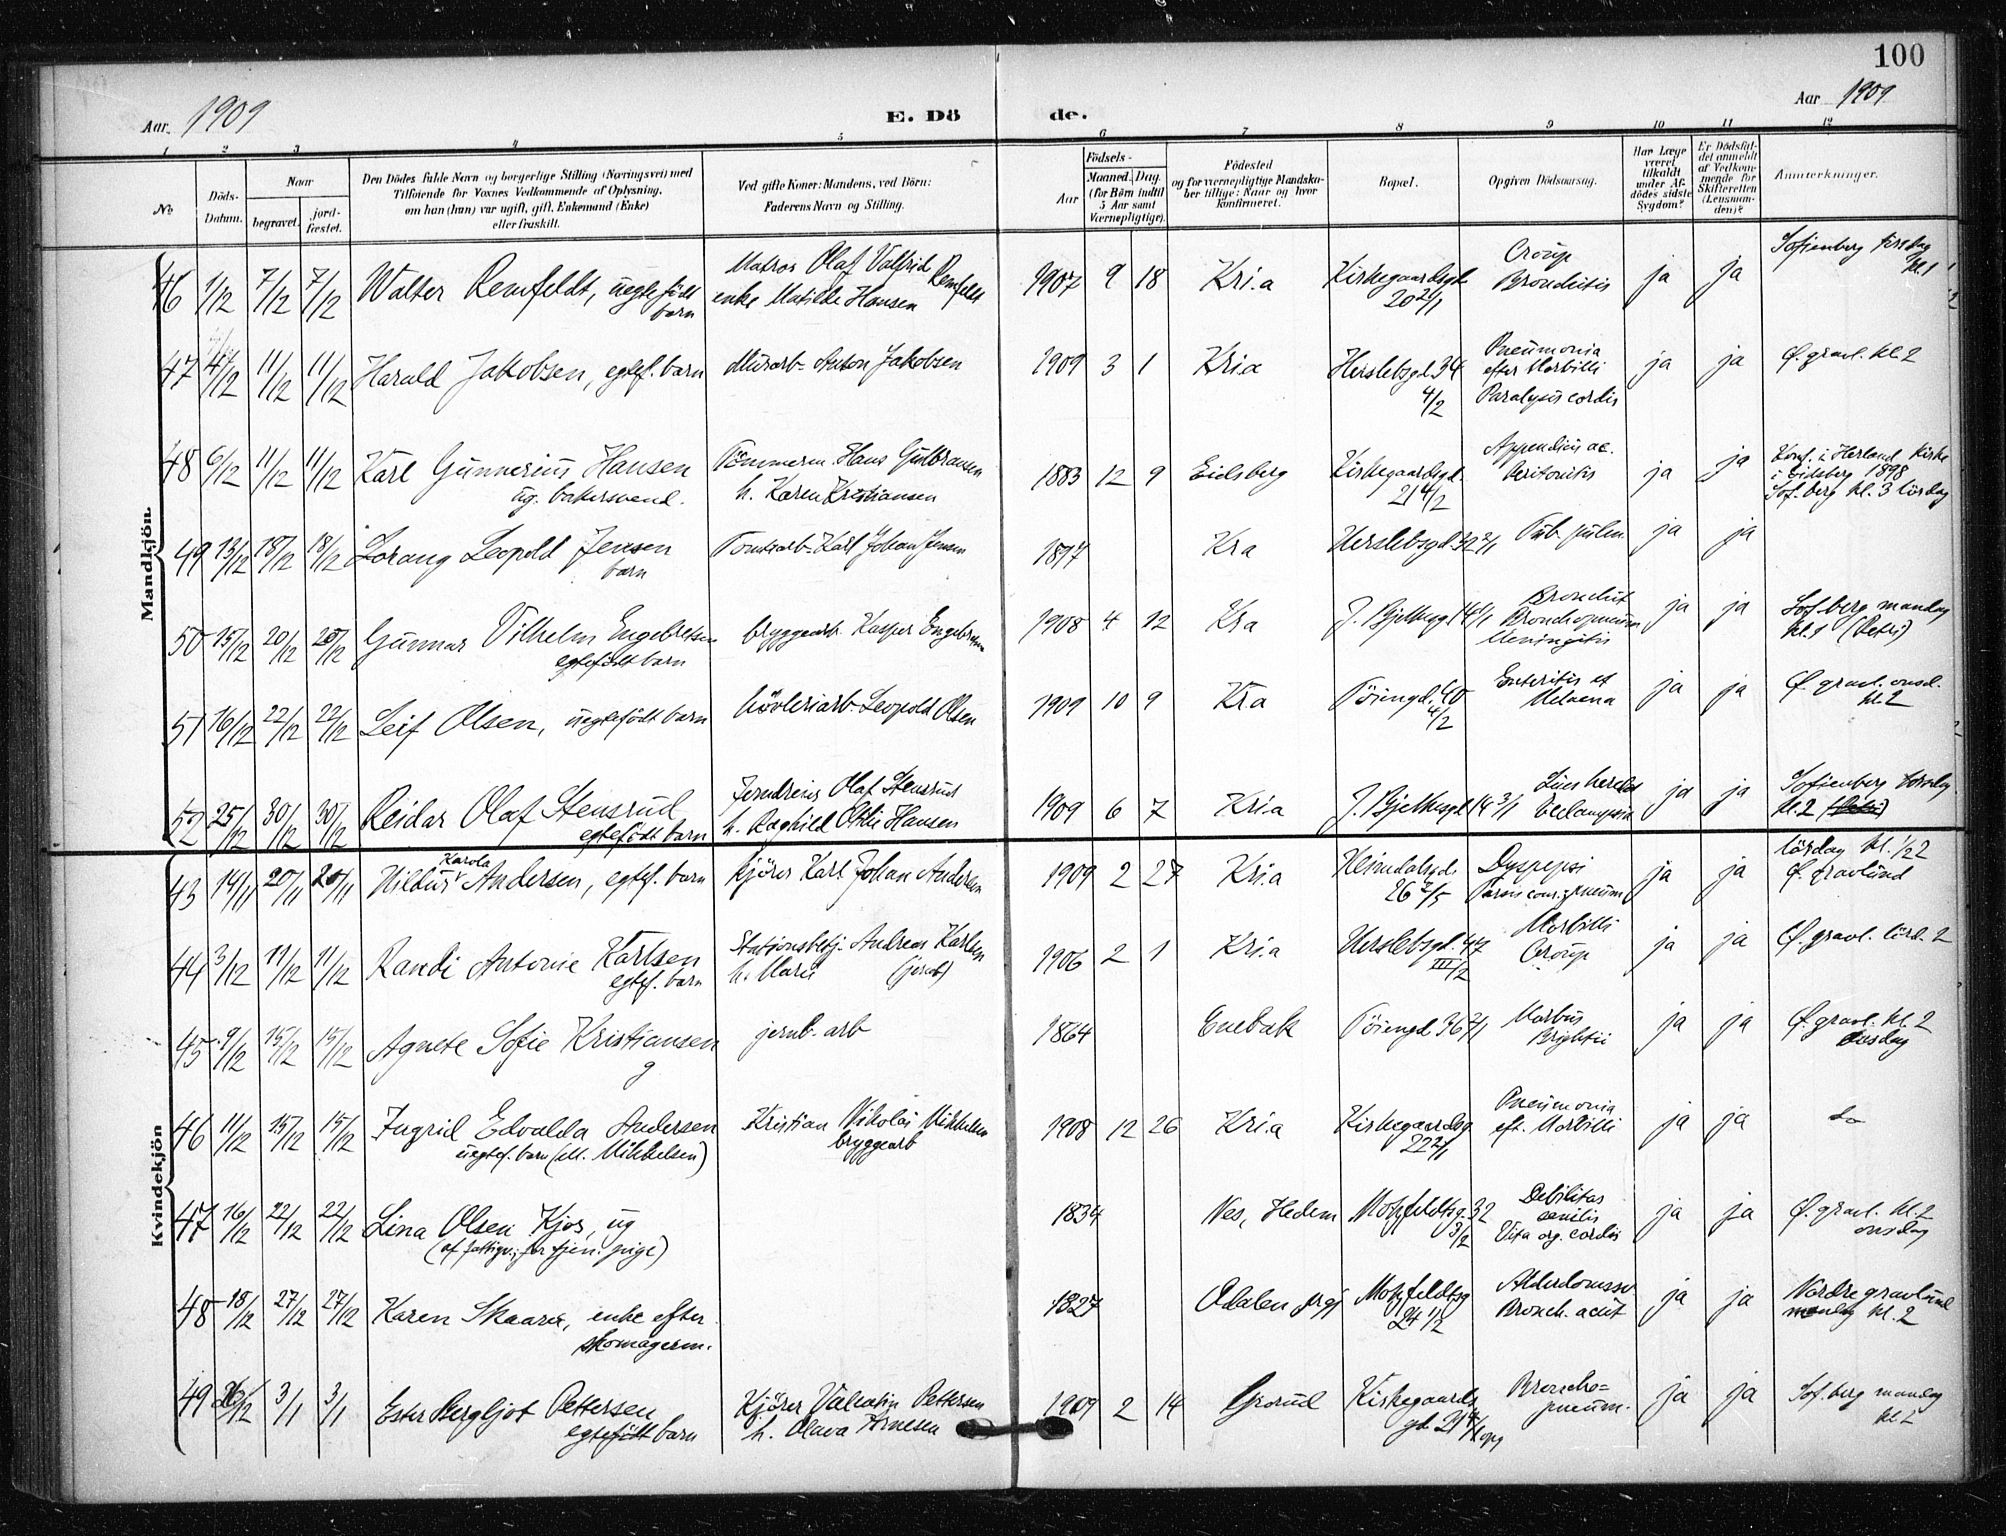 100
Aar 1909
E. Dö
de.
Aar 1909
1 2 3 4 5 6 7 8 9 10 11 12
No
Döds-Datum.
Naar
begravet.
jord-fæstet.
Den Dödes fulde Navn og borgerlige Stilling (Næringsvei) med
Tilföiende for Voxnes Vedkommende af Oplysning,
om han (hun) var ugift, gift, Enkemand (Enke)
eller fraskilt.
Ved gifte Koner: Mandens, ved Börn:
Faderens Navn og Stilling.
Födsels-
Aar
Maaned. Dag.
(for Börn indtil
5 Aar samt
Værnepligtige).
Födested
og for værnepligtige Mandska-
ber tillige: Naar og hvor
konfirmeret.
Bopæl.
Opgiven Dödsaarsag.
Har Læge
været
tilkaldt
under Af-
dödes sidste
Sygdom?
Er Dödsfal-
det anmeldt
af Vedkom-
mende for
Skifteretten
(Lensman-
den)?
Anmærkninger.
Mandkjön.
46 1/12 7/12 7/12 Walter Remfeldt, uegtefödt barn
Matros Olaf Valfrid Remfeldt
enke Matilde Hansen
1907 9 18 Kri.a Kirkegaardsgd. 20 2/1 Croup Bronchitis ja ja Sofienberg tirsdag kl. 1
47 4/12 11/12 11/12 Harald Jakobsen, egtef. barn
Murarb. Anton Jakobsen
1909 3 1 Kria Herslebsgd. 34 4/2 Pneumonia efter Morbilli Paralysis cordis ja ja Ø. gravl. kl. 2
48 6/12 11/12 11/12 Karl Gunnerius Hansen
ug. bakersvend.
Tömmerm. Hans Gulbransen
h. Karen Kristiansen
1883 12 9 Eidsberg Kirkegaardsgd. 21 4/2 Appendicis ac. Peritonitis ja ja Konf. i Herland Kirke
i Eidsberg 1898
Sof. berg kl. 3 lördag
49 13/12 18/12 18/12 Lorang Leopold Jensen
barn
Karl Johan Jensen
1897 Kra Herslebsgd. 32 2/1 Tub. pulm. ja ja
50 15/12 20/12 20/12 Gunnar Vilhelm Engebretsen
egtefödt barn
bryggearb. Kasper Engebretsen
1908 4 12 Kra J. Bjelkesgd. 14 1/1 Bronchit Bronchopneum Meningitis ja ja Sof. berg mandag
kl. 1 (Petri)
51 16/12 22/12 22/12 Leif Olsen, uegtefödt barn
hövleriarb. Leopold Olsen
1909 10 9 Kra Töiengd. 40 4/2 Enteritis et Melaena ja ja Ø. gravl. onsd.
kl. 2
52 25/12 30/12 30/12 Reidar Olaf Stensrud
egtefödt barn
Jerndreier Olaf Stensrud
h. Ragnhild Otilie Hansen
1909 6 7 Kri.a J. Bjelkesgd. 14 3/1 Lues hered. Eclampsia ja ja Sofienberg torsdag
kl. 2
Kvindekjön
43 14/11 20/11 20/11 Hildur Karola Andersen, egtef. barn
Kjörer Karl Johan Andersen
1909 2 27 Kri.a Heimdalsgd. 26 2/5 Dyspepsi ja ja lördag kl. 1/2 2
Ø. gravlund
44 3/12 11/12 11/12 Randi Antonie Karlsen
egtef. barn
Stationsbetj. Andreas Karlsen
h. Marie (jernb)
1906 2 1 Kri.a Herslebsgd. 47 III/2 Morbilli Croup ja ja Ø. gravl. lörd. 2
45 9/12 15/12 15/12 Agnete Sofie Kristiansen
g
jernb. arb
1864 Enebak Töiengd. 36 2/1 Morbus Brightii ja ja Ø. gravl. kl. 2
onsdag
46 11/12 15/12 15/12 Ingrid Edvalda Andersen
uegtef. barn (el. Mikkelsen)
Kristian Nikolai Mikkelsen
bryggearb
1908 12 26 Kri.a Kirkegaardsg 22 2/1 Pneumonia eft. Morbilli ja ja do
47 16/12 22/12 22/12 Lina Olsen Kjos, ug
(af fattigv.; før tjen. pige)
1834 Nes, Hedem Motzfeldtsg. 32 3/2 Debilitas senilis Vita org. cordis ja ja Ø. gravl. kl. 2
onsdag
48 18/12 27/12 27/12 Karen Skaarer, enke efter
skomagerm.
1827 Odalen Motzfeldtsg 24 1/2 Alderdomssv Bronch. acut ja ja Nordre gravlund
mandag kl. 2
49 26/12 3/1 3/1 Ester Bergljot Pettersen
egtefödt barn
Kjörer Valentin Pettersen
h. Olava Arnesen
1909 2 14 Grorud Kirkegaards gd. 21 4/1 opg Broncho-pneum. ja ja Sof. berg mandag
kl 2